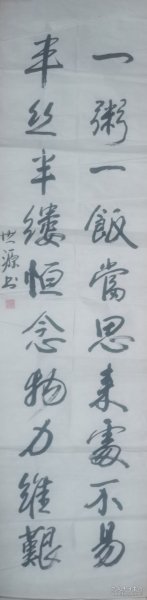 一粥一飯當思来處不易
半丝半缕恒念物力維艱
世源书